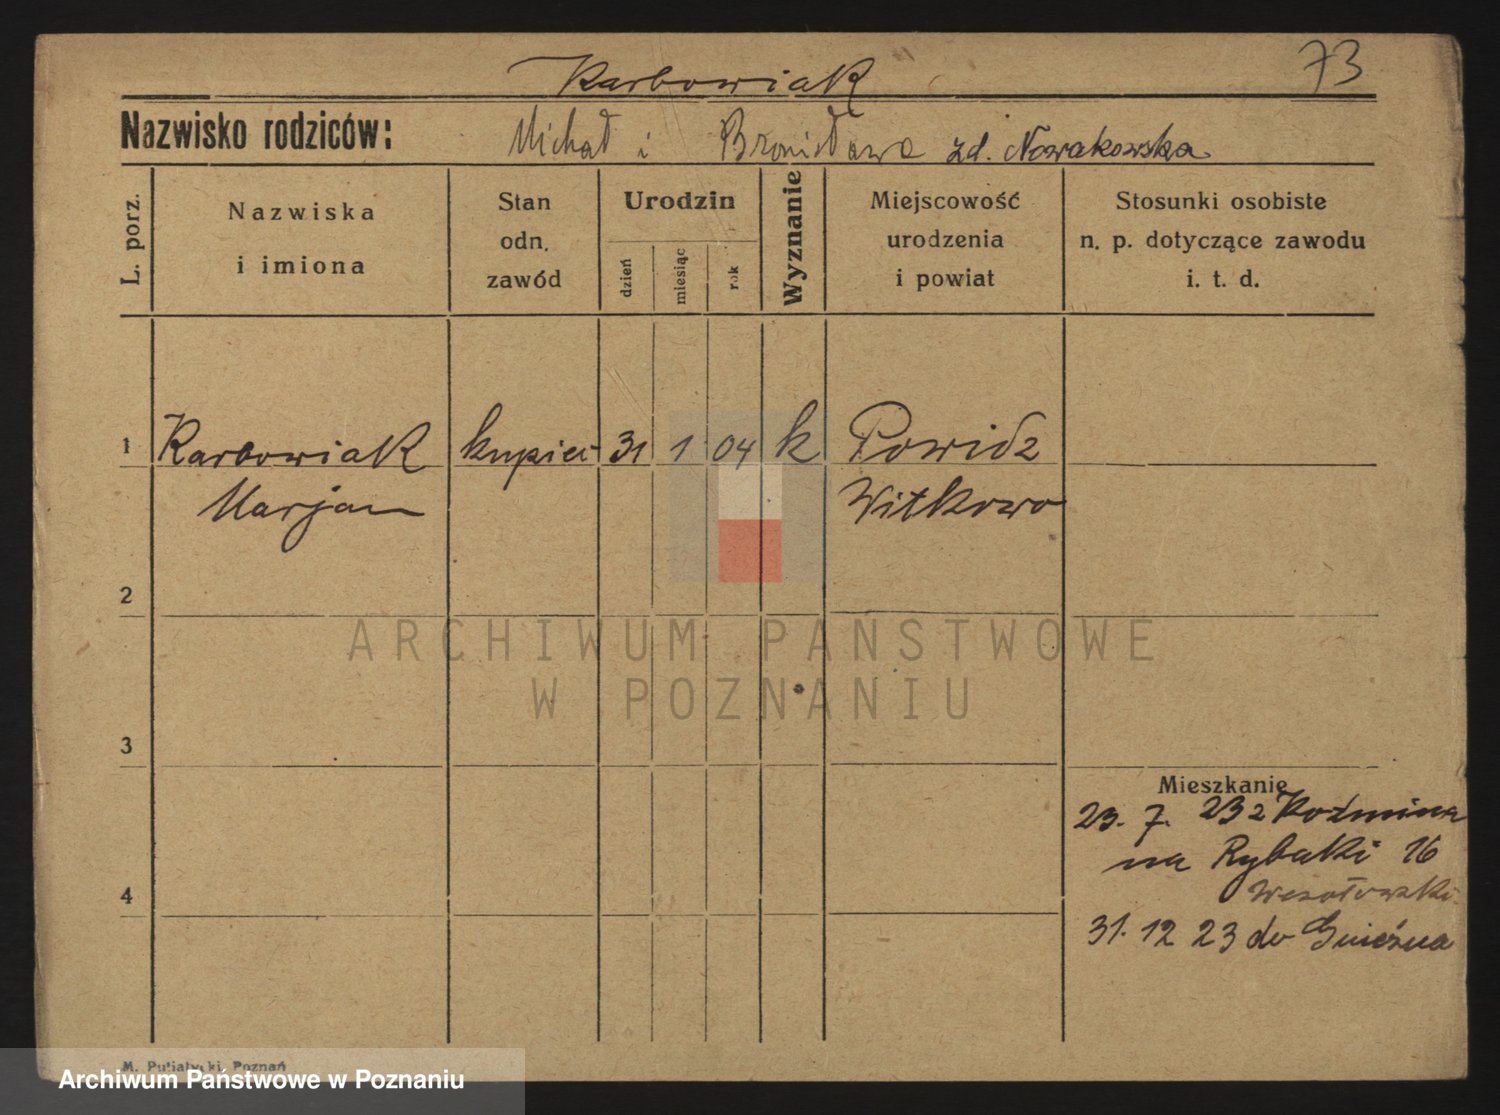 Karbowiak
73
Nazwisko rodziców: Michał i Bronisława zd. Nowakowska
L. porz.
Nazwiska
i imiona
Stan
odn.
zawód
Urodzin
dzień
miesiąc
rok
Wyznanie
Miejscowość
urodzenia
i powiat
Stosunki osobiste
n. p. dotyczące zawodu
i. t. d.
1 Karbowiak kupiec 31 1 04 k Powidz
Marjan Witkowo
2
ARCHIWUM PAŃSTWOWE
W POZNANIU
3
Mieszkanie
23. 7. 23 z Koźmina
na Rybaki 16
Wesołowski
4
31. 12 23 do Gniezna
M. Putiatycki, Poznań
Archiwum Państwowe w Poznaniu